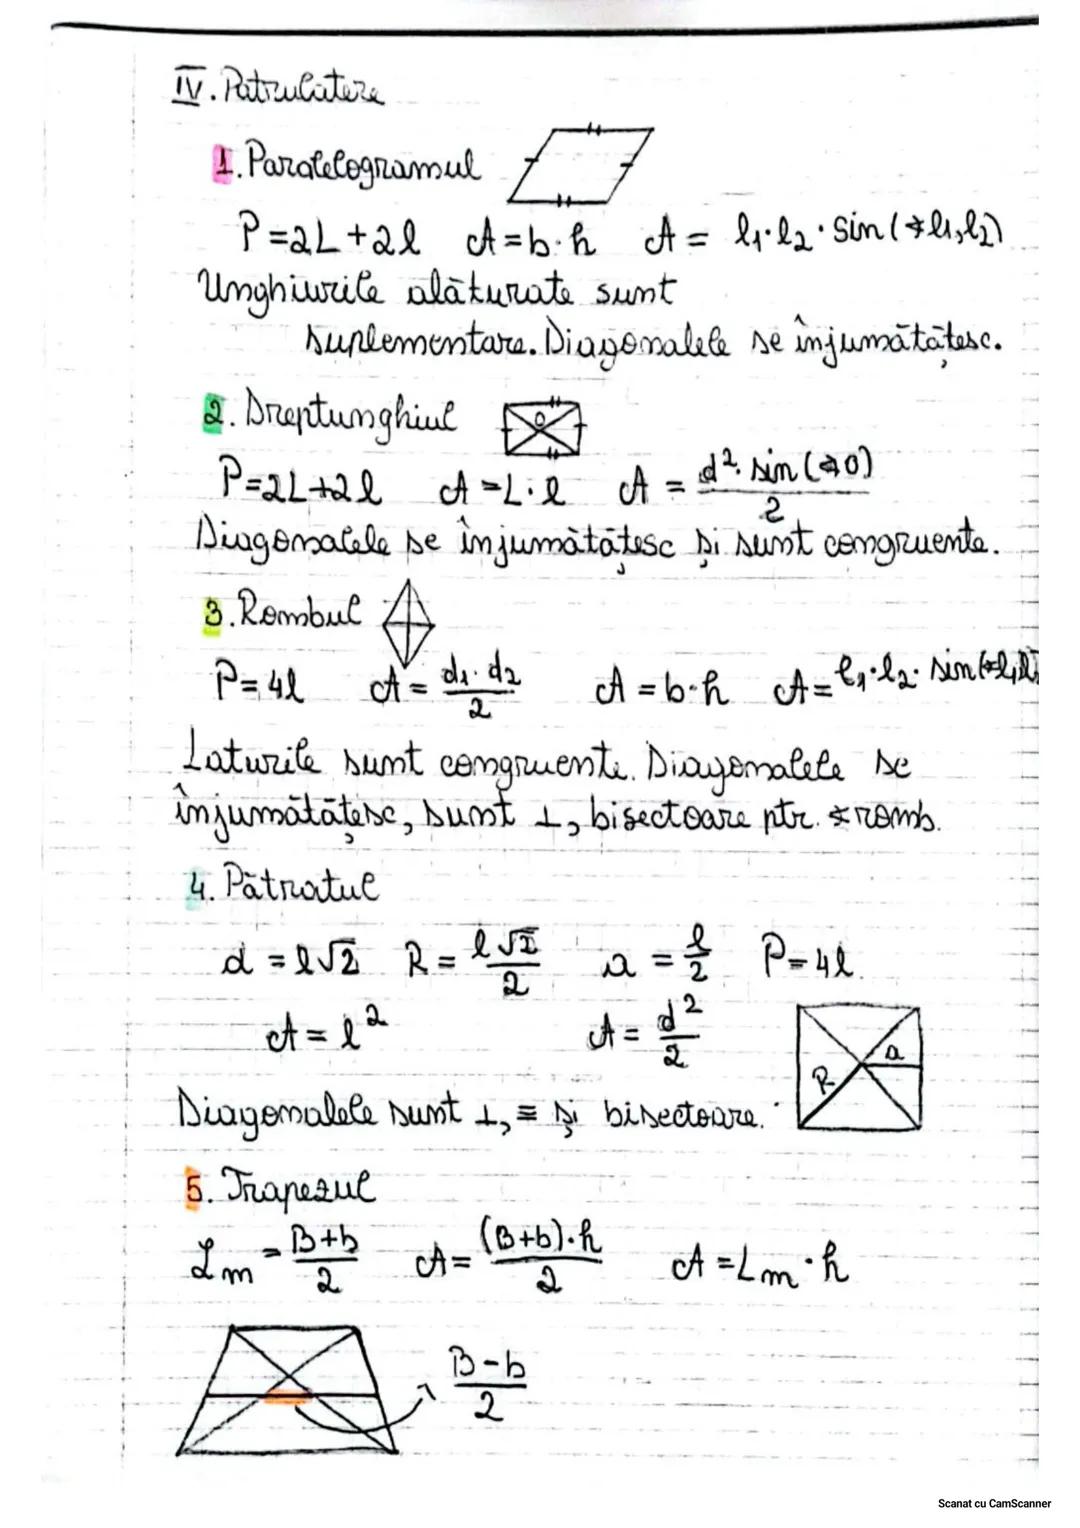 IV. Patrulatere
1. Paralelogramul
P=2L+2l A=b·h A= l₁·l₂·sin(∢l₁,l₂)
Unghiurile alăturate sunt
suplementare. Diagonalele se înjumătățesc.
2. Dreptunghiul
O
P=2L+2l A=L·l A = d²·sin(∢O)/2
Diagonalele se înjumătățesc și sunt congruente.
3. Rombul
P=4l A=d₁·d₂/2 A=b·h A=l₁·l₂·sin(∢l₁,l₂)
Laturile sunt congruente. Diagonalele se
înjumătățesc, sunt ⊥, bisectoare ptr. ∢romb.
4. Pătratul
d=l√2 R=l√2/2 a=l/2 P=4l
A=l² A=d²/2
R a
Diagonalele sunt ⊥, ≡ și bisectoare.
5. Trapezul
Lm=B+b/2 A=(B+b)·h/2 A=Lm·h
B-b/2
Scanat cu CamScanner